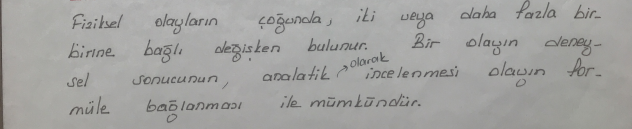 Fiziksel olayların çoğunda, iki veya daha fazla bir-
birine bağlı değişken bulunur. Bir olayın deney-
sel sonucunun, analatik olarak incelenmesi olayın for-
müle bağlanması ile mümkündür.